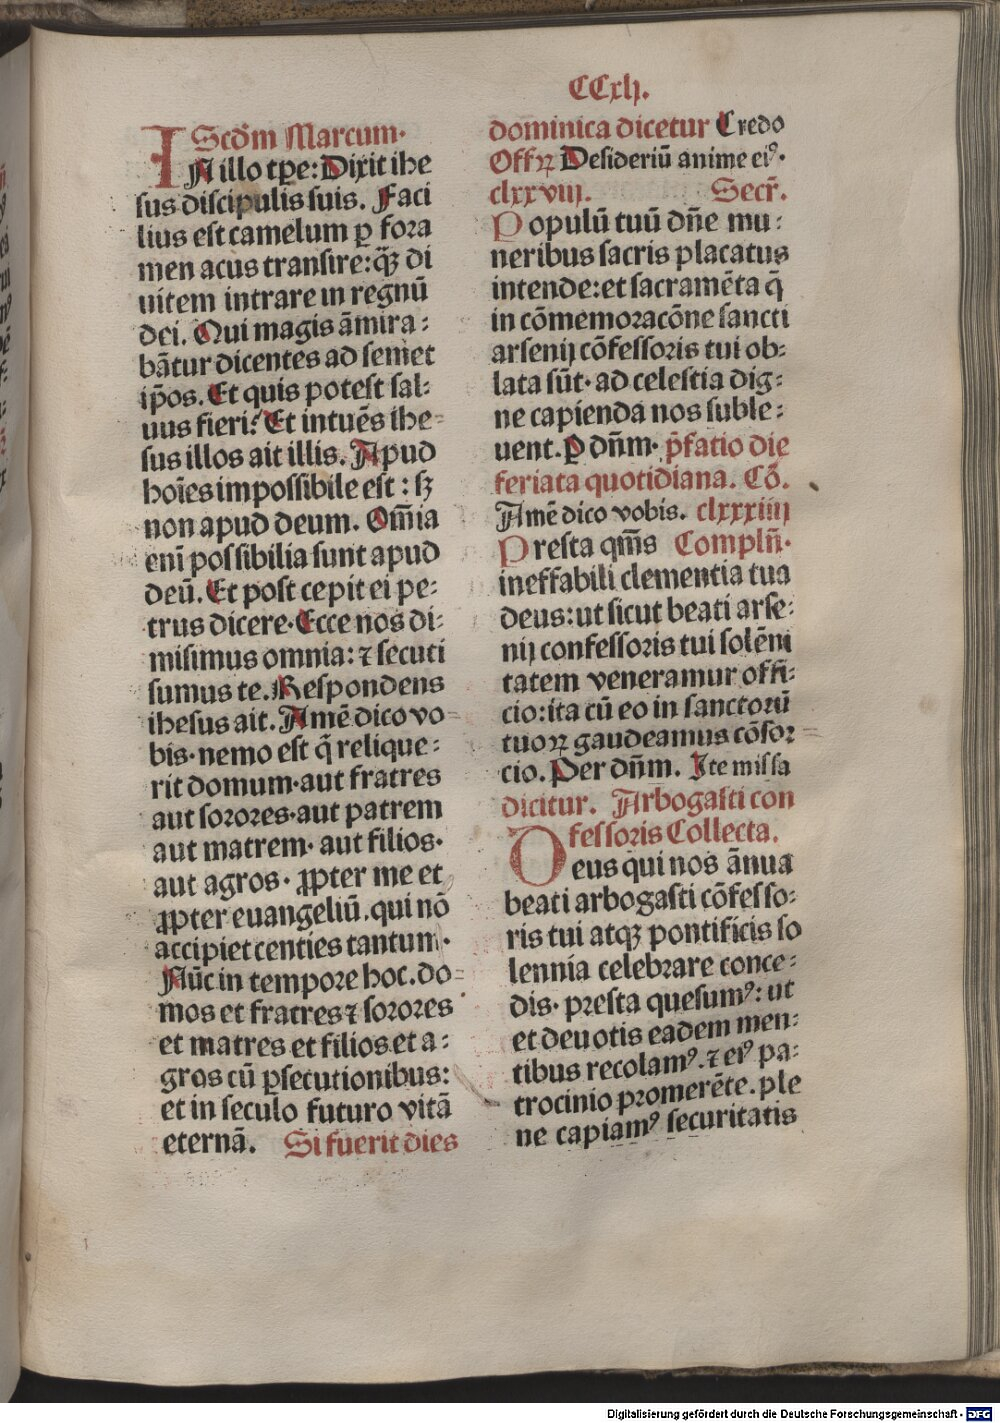 CCxlj.
Scđm Marcum.
IN illo tp̄e: Dixit ihe
sus discipulis suis. Faci
lius est camelum ꝑ fora
men acus transire: qꝫ di
uitem intrare in regnū
dei. Qui magis āmira:
bātur dicentes ad semet
ip̄os. Et quis potest sal:
uus fieri? Et intuēs ihe
sus illos ait illis. Apud
hoīes impossibile est: sꝫ
non apud deum. Om̄ia
eni possibilia sunt apud
deū. Et post cepit ei pe:
trus dicere. Ecce nos di:
misimus omnia: ⁊ secuti
sumus te. Respondens
ihesus ait. Amē dico vo
bis. nemo est q̄ relique:
rit domum. aut fratres
aut sorores. aut patrem
aut matrem. aut filios.
aut agros. ꝓpter me et
ꝓpter euangeliū. qui nō
accipiet centies tantum.
Nūc in tempore hoc. do
mos et fratres ⁊ sorores
et matres et filios et a:
gros cū ꝑsecutionibus:
et in seculo futuro vitā
eternā. Si fuerit dies
dominica dicetur Credo
Offꝝ Desideriū anime eiꝰ.
clxxviij. Secr̄.
Populū tuū dn̄e mu:
neribus sacris placatus
intende: et sacramēta q̄
in cōmemoracōne sancti
arsenij cōfessoris tui ob:
lata sūt. ad celestia dig:
ne capienda nos suble:
uent. ꝑ dn̄m. p̄fatio die
feriata quotidiana. Cō.
Amē dico vobis. clxxxiiij
Presta qm̄s Compln̄.
ineffabili clementia tua
deus: ut sicut beati arse:
nij confessoris tui solēni
tatem veneramur offi:
cio: ita cū eo in sanctorū
tuoꝝ gaudeamus cōsor
cio. Per dn̄m. Ite missa
dicitur. Arbogasti con
fessoris Collecta.
Deus qui nos ānua
beati arbogasti cōfesso:
ris tui atqꝫ pontificis so
lennia celebrare conce:
dis. presta quesumꝰ: ut
et deuotis eadem men:
tibus recolamꝰ. ⁊ eiꝰ pa:
trocinio promerēte. ple
ne capiamꝰ securitatis
Digitalisierung gefördert durch die Deutsche Forschungsgemeinschaft - DFG